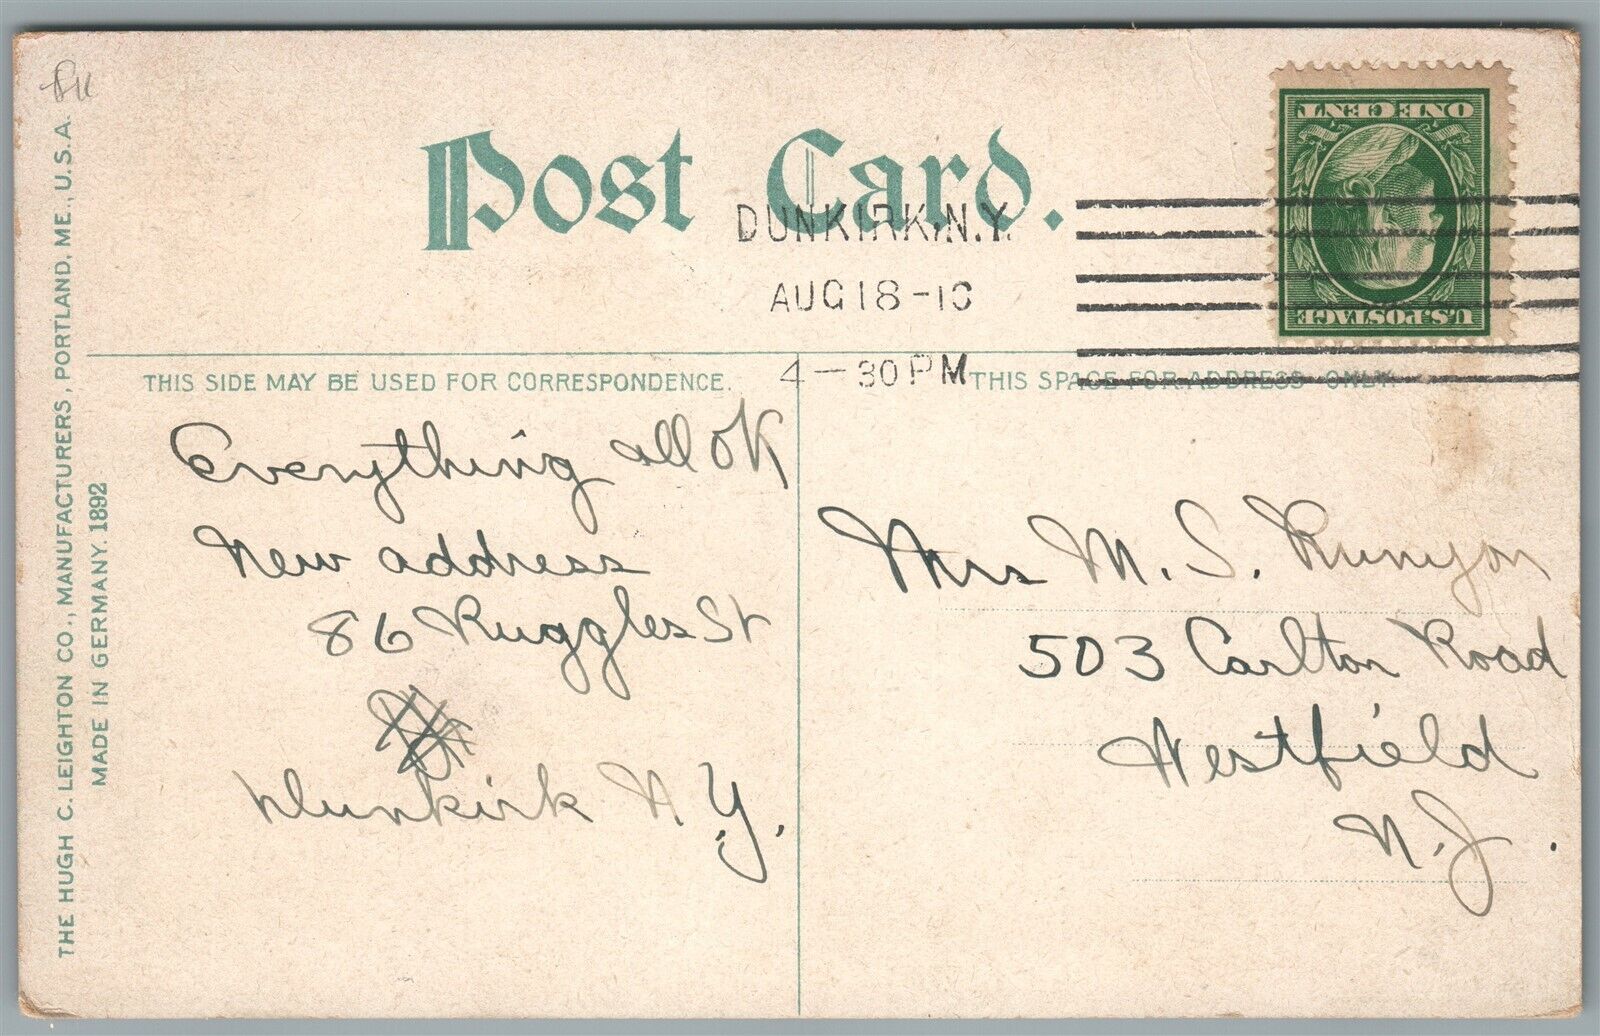 Post Card.
DUNKIRK, N.Y.
AUG 18 -10
4 - 30 PM
ONE CENT
U.S. POSTAGE
THIS SIDE MAY BE USED FOR CORRESPONDENCE.
THIS SPACE FOR ADDRESS ONLY.
Everything all OK
New address
86 Ruggles St
Dunkirk N.Y.
Mrs M. S. Runyon
503 Carlton Road
Westfield
N.J.
THE HUGH C. LEIGHTON CO., MANUFACTURERS, PORTLAND, ME., U.S.A.
MADE IN GERMANY. 1892